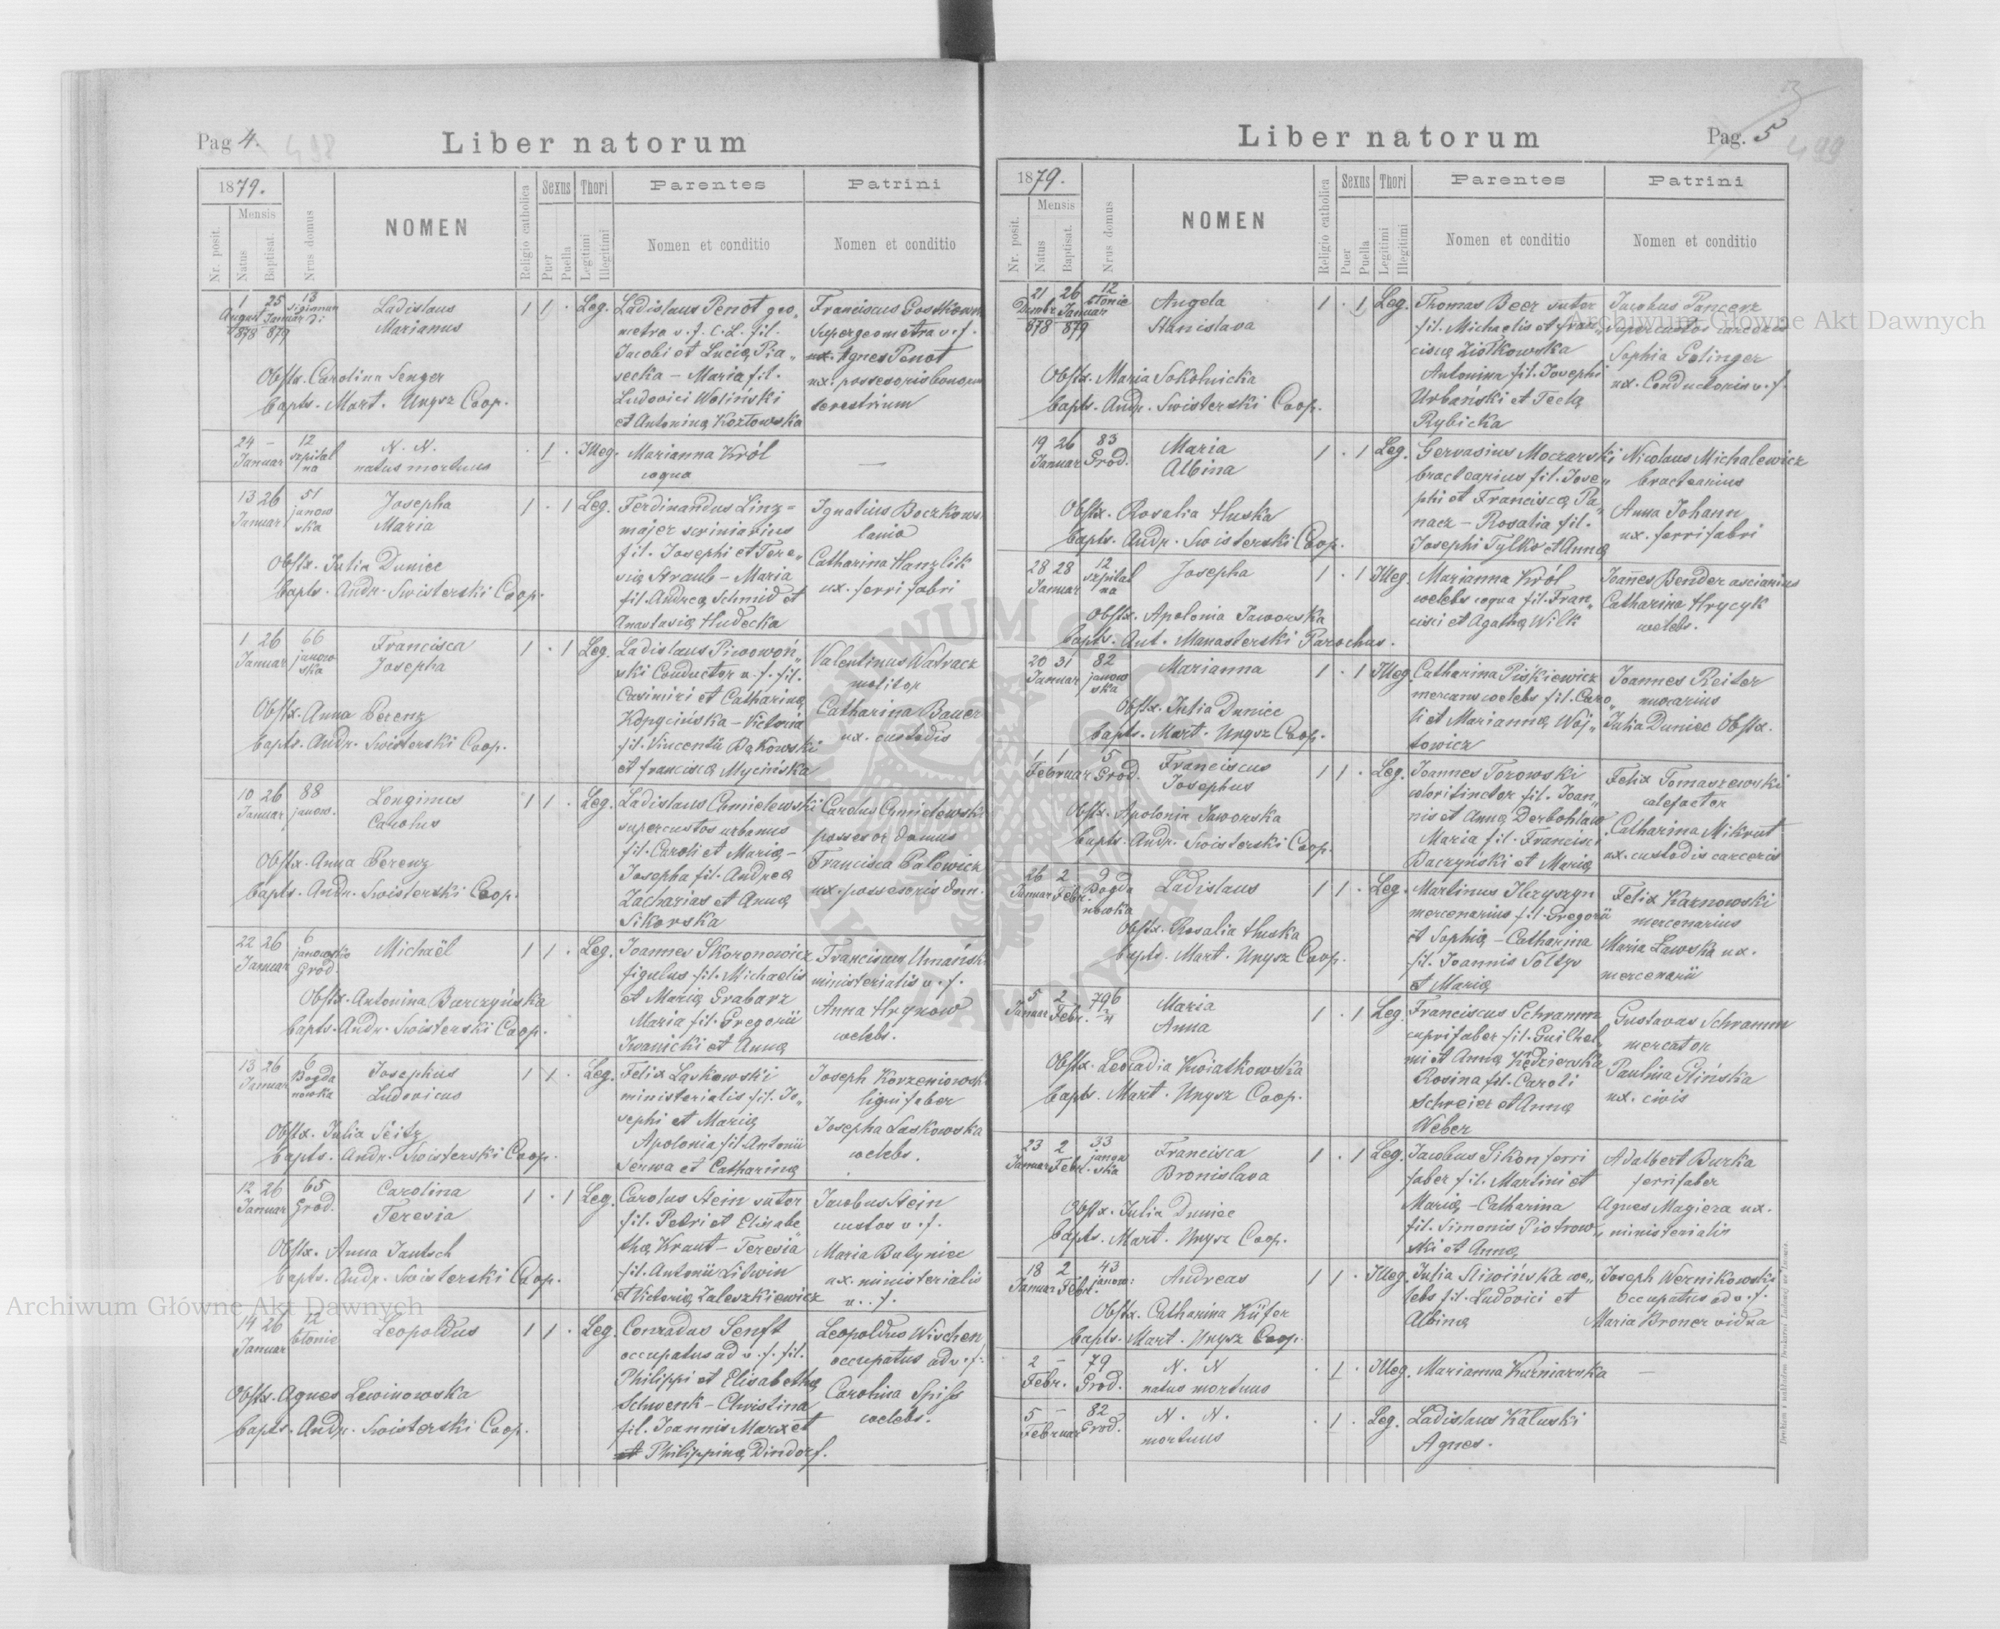 Pag 4. 498
Liber natorum
1879.
Nr. posit.
Mensis
Natus
Baptisat.
Nrus domus
NOMEN
Religio catholica
Sexus
Puer
Puella
Thori
Legitimi
Illegitimi
Parentes
Nomen et conditio
Patrini
Nomen et conditio
1 25 13
August Januar
878 879
Ladislaus
Marianus
1 1 . Leg.
Ladislaus Penot geo„
metra v. f. C. L. fil.
Jacobi et Lucią Pia„
secka – Maria fil.
Ludovici Woliński
et Antoniną Kozłowska
Franciscus Gostkows
supergeometra v. f.
ux. Agnes Penot
ux. possessoris bonorum
terestrium
Obstx. Carolina Senger
bapts. Mart. Ungsz Coop.
24 – 12
Januar szpital
na
N. N.
natus mortuus
. 1 . Illeg.
Marianna Król
coqua
—
13 26 51
Januar janow
ska
Josepha
Maria
1 . 1 Leg.
Ferdinandus Linz=
majer scriniarius
fil. Josephi et Tere„
sią Straub – Maria
fil. Andreą Schmid et
Anastasią Hudecka
Ignatius Boczkows.
lanio
Catharina Hanzlik
ux. ferri fabri
Obstx. Julia Duniec
bapts. Andr. Swisterski Coop.
1 26 66
Januar janow
ska
Francisca
Josepha
1 . 1 Leg.
Ladislaus Piwowoń„
ski Conductor v. f. fil.
Casimiri et Catharina
Kopycińska – Victoria
fil. Vincentii Bąkowski
et Franciscą Mycińska
Valentinus Watracz
molitor
Catharina Bauer
ux. custodis
Obstx. Anna Perenz
bapts. Andr. Swisterski Coop.
10 26 88
Januar janow.
Longinus
Carolus
1 1 . Leg.
Ladislaus Chmielewski
supercustos urbanus
fil. Caroli et Marią –
Josepha fil. Andreą
Zacharias et Anną
Sikorska
Carolus Chmielowski
possesor domus
Francisca Palewicz
ux. possesoris dom.
Obstx. Anna Perenz
bapts. Andr. Swisterski Coop.
22 26 6
Januar janowska
Grod.
Michaël
1 1 . Leg.
Joannes Skoronowicz
figulus fil. Michaelis
et Marią Grabarz
Maria fil. Gregorii
Iwanicki et Anną
Franciscus Umańsk
ministerialis v. f.
Anna Hrynow
coelebs.
Obstx. Antonina Barczyńska
bapts. Andr. Swisterski Coop.
13 26 6
Januar Bogda
nowka
Josephus
Ludovicus
1 1 . Leg.
Felix Laskowski
ministerialis fil. Jo„
sephi et Marią
Apolonia fil. Antonii
Senwa et Catharina
Joseph Korzeniowsk
lignifaber
Josepha Laskowska
coelebs.
Obstx. Julia Seitz
bapts. Andr. Swisterski Coop.
12 26 65
Januar Grod.
Carolina
Teresia
1 . 1 Leg.
Carolus Stein sutor
fil. Petri et Elisabe
thą Kraut – Teresia
fil. Antonii Litwin
et Victorią Zaleszkiewicz
Jacobus Stein
custos v. f.
Maria Batyniec
ux. ministerialis
v. f.
Obstx. Anna Jantsch
bapts. Andr. Swisterski Coop.
14 26 12
Januar błonie
Leopoldus
1 1 . Leg.
Conradus Senft
occupatus ad v. f. fil.
Philippi et Elisabetha
Schwenk – Christina
fil. Joannis Marx et
et Philippiną Dindorf.
Leopoldus Wischen
occupatus ad v. f.
Carolina Spiss
coelebs.
Obstx. Agnes Lewinowska
bapts. Andr. Swisterski Coop.
Pag. 5 499
Liber natorum
1879.
Nr. posit.
Mensis
Natus
Baptisat.
Nrus domus
NOMEN
Religio catholica
Sexus
Puer
Puella
Thori
Legitimi
Illegitimi
Parentes
Nomen et conditio
Patrini
Nomen et conditio
21 26 12
Dezmbr Januar błonie
878 879
Angela
Stanislava
1 . 1 Leg.
Thomas Beer sutor
fil. Michaelis et Fran„
ciscą Ziółkowska
Antonina fil. Josephi
Urbański et Teclą
Rybicka
Jacobus Pancerz
supercustos carceres
Sophia Golinger
ux. Conductoris v. f.
Obstx. Maria Sokolnicka
bapts. Andr. Swisterski Coop.
19 26 83
Januar Grod.
Maria
Albina
1 . 1 Leg.
Gervasius Moczarski
bractearius fil. Jose„
phi et Franciscą Pa„
nacz – Rosalia fil.
Josephi Tylko et Anną
Nicolaus Michalewicz
bractearius
Anna Johann
ux. ferrifabri
Obstx. Rosalia Huska
bapts. Andr. Swisterski Coop.
28 28 12
Januar szpital
na
Josepha
1 . 1 Illeg.
Marianna Król
coelebs coqua fil. Fran„
cisci et Agathą Wilk
Joañes Bender asciarius
Catharina Hrycyk
coelebs.
Obstx. Apolonia Jaworska
bapts. Ant. Manasterski Parochus.
20 31 82
Januar janow
ska
Marianna
1 . 1 Illeg.
Catharina Piśkiewicz
mercans coelebs fil. Caro„
li et Marianną Woj„
towicz
Joannes Reiter
murarius
Julia Duniec Obstx.
Obstx. Julia Duniec
bapts. Mart. Ungsz Coop.
1 1 5
Februar Grod.
Franciscus
Josephus
1 1 . Leg.
Joannes Torowski
coloritinctor fil. Joan„
nis et Anną Derbohlaw
Maria fil. Francisci
Baczyński et Marią
Felix Tomaszewski
calefactor
Catharina Mikrut
ux. custodis carceris
Obstx. Apolonia Jaworska
bapts. Andr. Swisterski Coop.
26 2 9
Januar Febr. Bogda
nowka
Ladislaus
1 1 . Leg.
Martinus Ilczyszyn
mercenarius fil. Gregorii
et Sophią – Catharina
fil. Joannis Soltys
et Marią
Felix Karnowski
mercenarius
Maria Lawska ux.
mercenarii
Obstx. Rosalia Huska
bapts. Mart. Ungsz Coop.
5 2 796
Januar Febr.
Maria
Anna
1 . 1 Leg.
Franciscus Schramm
cuprifaber fil. Guilhel„
mi et Anną Kędzierska
Rosina fil. Caroli
Schreier et Anną
Weber
Gustavus Schramm
mercator
Paulina Glińska
ux. civis
Obstx. Leocadia Kwiatkowska
bapts. Mart. Ungsz Coop.
23 2 33
Januar Febr. janow
ska
Francisca
Bronislava
1 . 1 Leg.
Jacobus Sikon ferri
faber fil. Martini et
Marią – Catharina
fil. Simonis Piotrow„
ski et Anną
Adalbert Burka
ferrifaber
Agnes Magiera ux.
ministerialis
Obstx. Julia Duniec
bapts. Mart. Ungsz Coop.
18 2 43
Januar Febr. janow:
Andreas
1 1 . Illeg.
Julia Sliwińska coe„
lebs fil. Ludovici et
Albiną
Joseph Wernikowski
occupatus ad v. f.
Maria Broner vidua
Obstx. Catharina Küfer
bapts. Mart. Ungsz Coop.
2 – 79
Febr. Grod.
N. N
natus mortuus
. 1 . Illeg.
Marianna Kurniawska
—
5 – 82
Februar Grod.
N. N.
mortuus
. 1 . Leg.
Ladislaus Kałuski
Agnes.
Archiwum Główne Akt Dawnych
Archiwum Główne Akt Dawnych